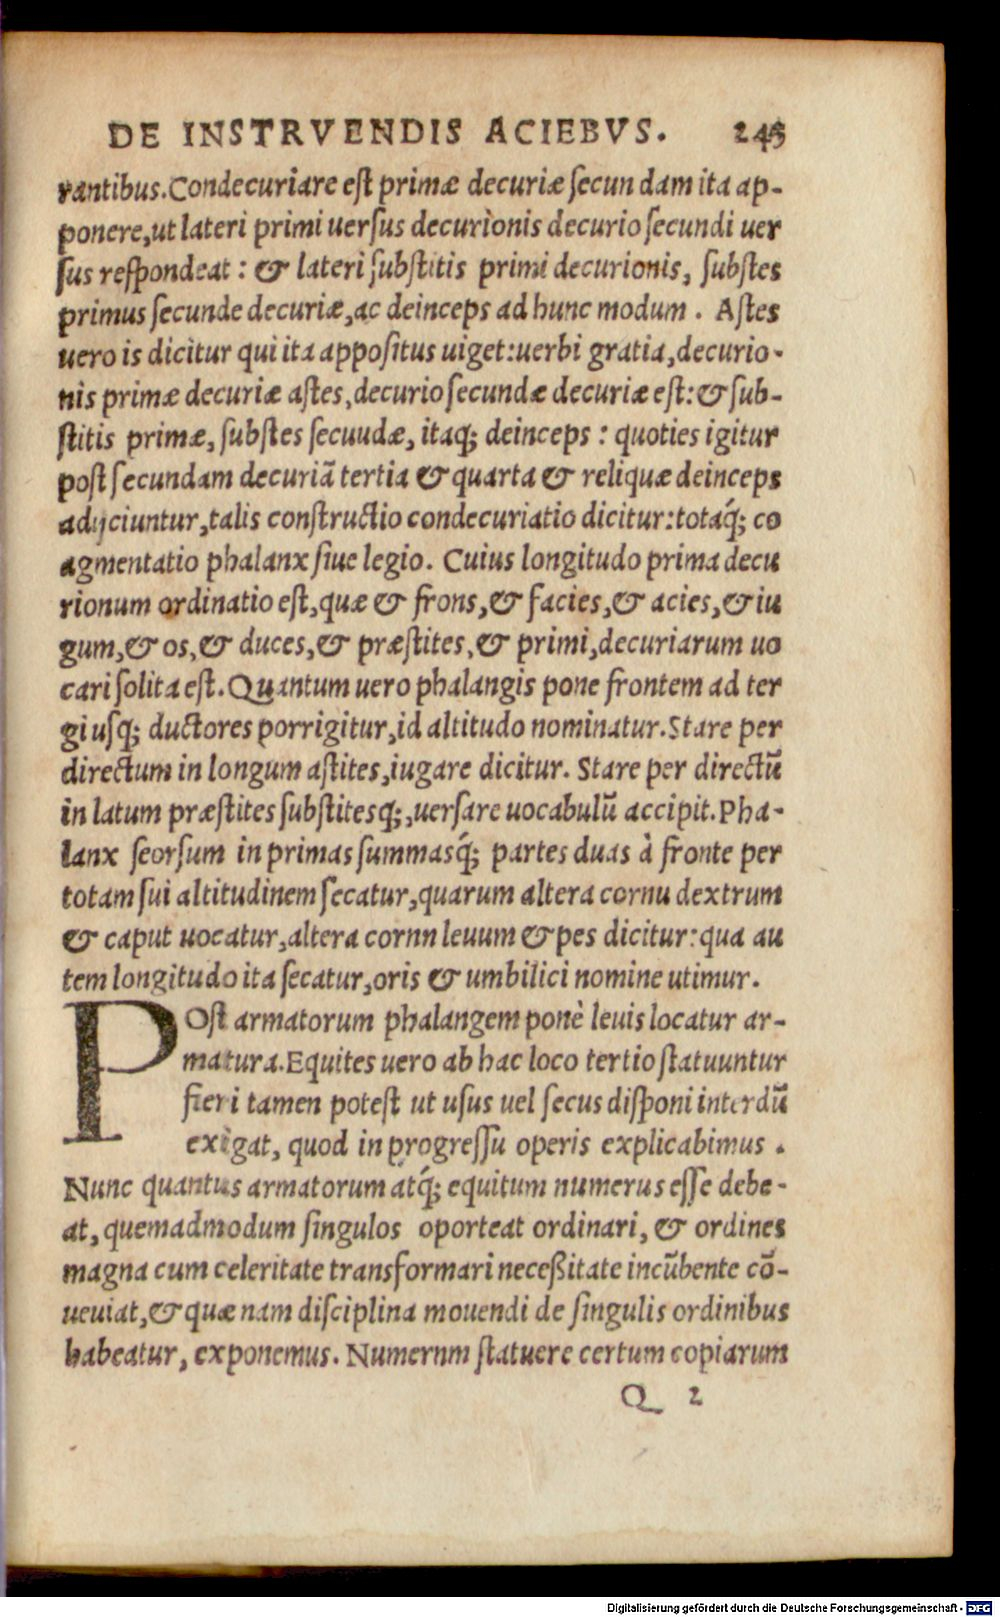 DE INSTRVENDIS ACIEBVS. 245
rantibus.Condecuriare est primæ decuriæ secun dam ita ap-
ponere,ut lateri primi uersus decurionis decurio secundi uer
sus respondeat : & lateri substitis primi decurionis, substes
primus secunde decuriæ,ac deinceps ad hunc modum . Astes
uero is dicitur qui ita appositus uiget:uerbi gratia,decurio-
nis primæ decuriæ astes,decurio secundæ decuriæ est:& sub-
stitis primæ, substes secuudæ, itaq; deinceps : quoties igitur
post secundam decuriã tertia & quarta & reliquæ deinceps
adijciuntur,talis constructio condecuriatio dicitur:totaq́; co
agmentatio phalanx siue legio. Cuius longitudo prima decu
rionum ordinatio est,quæ & frons,& facies,& acies,& iu
gum,& os,& duces,& præstites,& primi,decuriarum uo
cari solita est.Quantum uero phalangis pone frontem ad ter
gi usq; ductores porrigitur,id altitudo nominatur.Stare per
directum in longum astites,iugare dicitur. Stare per directũ
in latum præstites substitesq;,uersare uocabulũ accipit.Pha-
lanx seorsum in primas summasq́; partes duas à fronte per
totam sui altitudinem secatur,quarum altera cornu dextrum
& caput uocatur,altera cornn leuum & pes dicitur:qua au
tem longitudo ita secatur,oris & umbilici nomine utimur.
POst armatorum phalangem ponè leuis locatur ar-
matura.Equites uero ab hac loco tertio statuuntur
fieri tamen potest ut usus uel secus disponi interdũ
exigat, quod in progressu operis explicabimus .
Nunc quantus armatorum atq́; equitum numerus esse debe-
at, quemadmodum singulos oporteat ordinari, & ordines
magna cum celeritate transformari neceßitate incũbente cõ-
ueuiat,& quæ nam disciplina mouendi de singulis ordinibus
habeatur, exponemus. Numernm statuere certum copiarum
Q 2
Digitalisierung gefördert durch die Deutsche Forschungsgemeinschaft - DFG